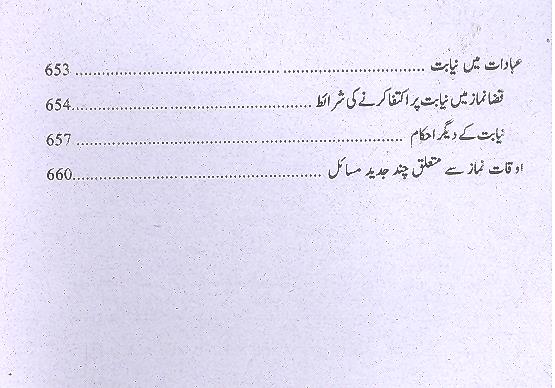 عبادات میں نیابت ........................................................................ 653
قضا نماز میں نیابت پر اکتفا کرنے کی شرائط ................................................. 654
نیابت کے دیگر احکام .................................................................... 657
اوقات نماز سے متعلق چند جدید مسائل ................................................... 660